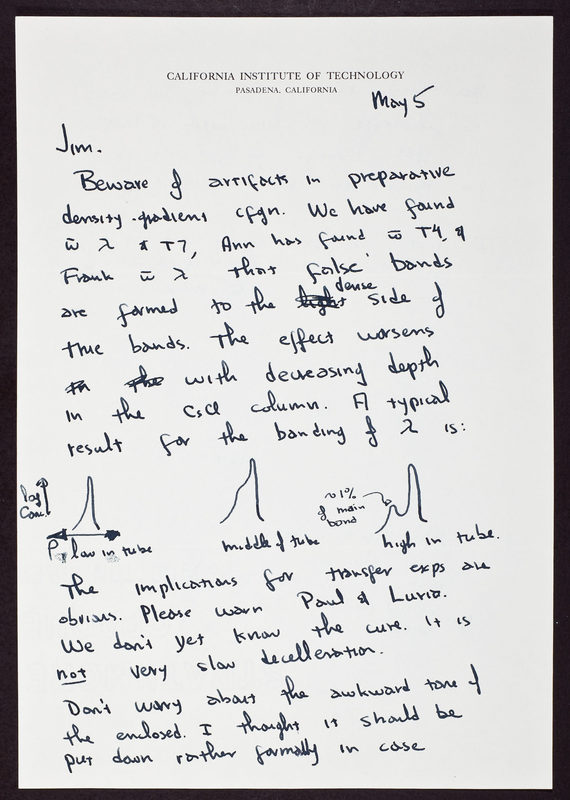 CALIFORNIA INSTITUTE OF TECHNOLOGY
PASADENA, CALIFORNIA
May 5
Jim.
Beware of artifacts in preparative
density-gradient cfgn. We have found
w̄ λ & T7, Ann has found w̄ T4, &
Frank w̄ λ that 'false' bands
are formed to the dense side of
true bands. The effect worsens
with decreasing depth
in the CsCl column. A typical
result for the banding of λ is:
Conc.
ρ
low in tube
middle of tube
~1%
of main
band
high in tube.
The implications for transfer exps are
obvious. Please warn Paul & Luria.
We don't yet know the cure. It is
not very slow decelleration.
Don't worry about the awkward tone of
the enclosed. I thought it should be
put down rather formally in case